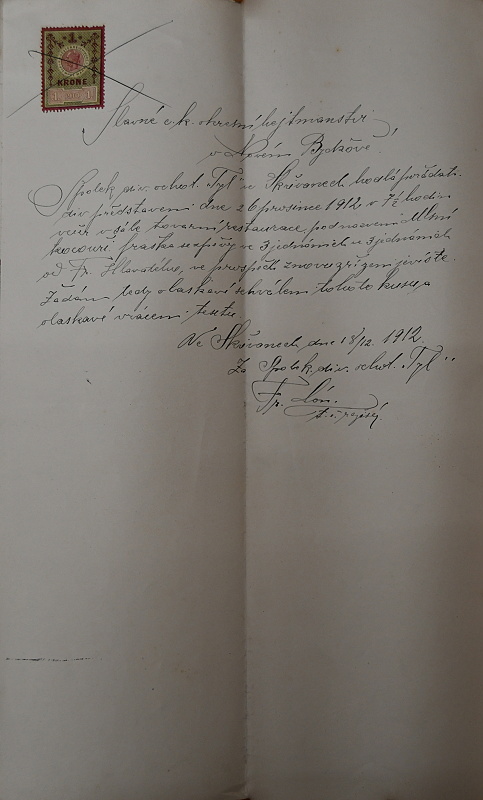 1
KRONE
Slavné c. k. okresní hejtmanství
v Novém Bydžově!
Spolek div. ochot. "Tyl" ve Skřivanech hodlá pořádati
div. představení dne 26 prosince 1912 v 7½ hodin
večer v sále tovární restaurace, pod názvem
kocouři, fraška se zpěvy ve 3 jednáních
od Fr. ve prospěch znovuzřízení jeviště.
Žádám tedy o laskavé schválení tohoto kusu a
o laskavé vrácení textu.
Ve Skřivanech, dne 18/12. 1912.
Za Spolek div. ochot. "Tyl"
Fr.
t. č. režisér.